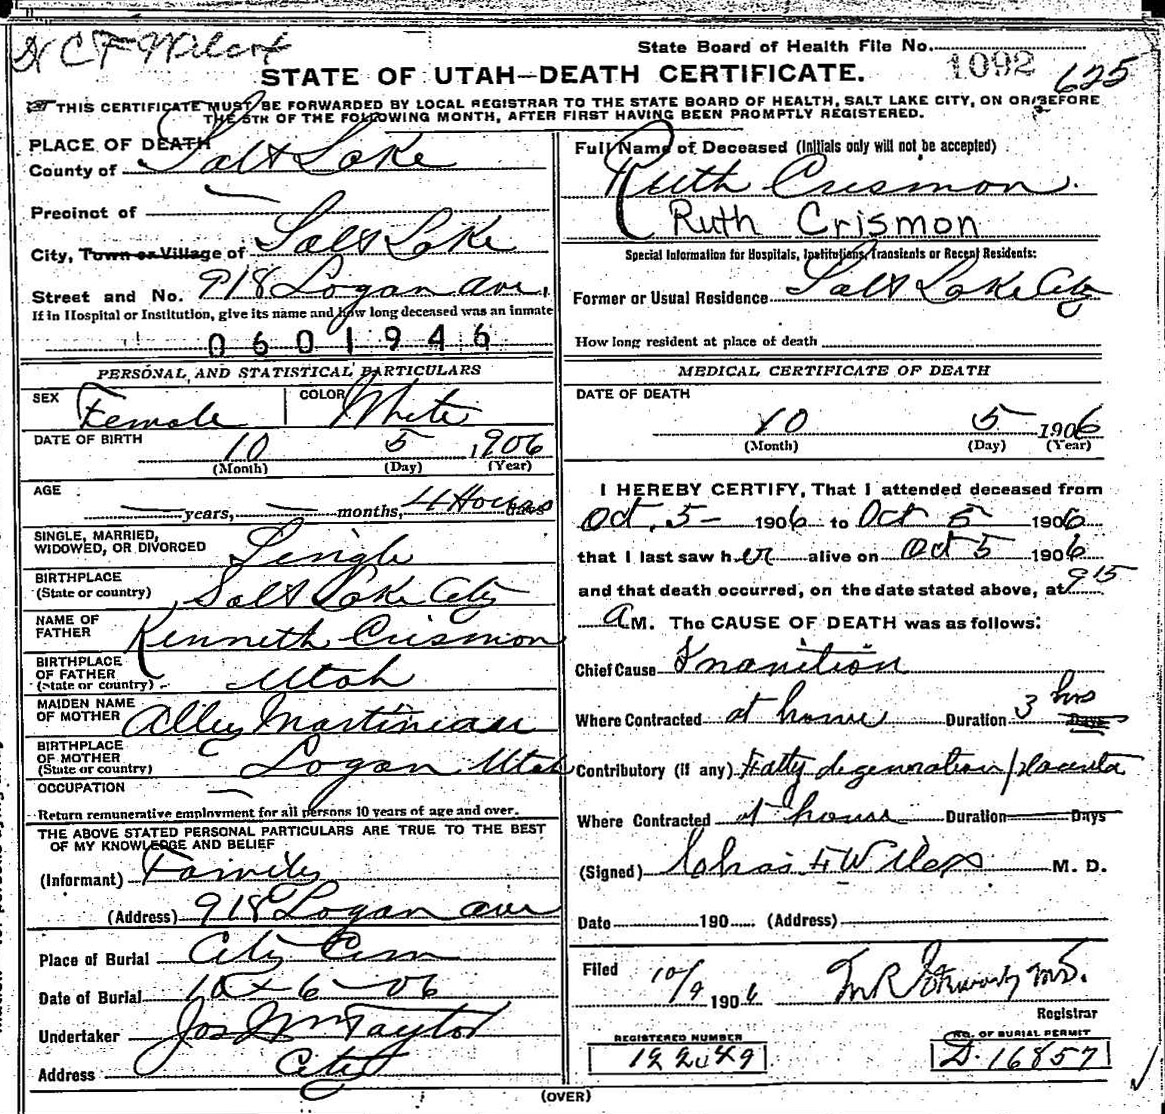 State Board of Health File No. 1092
625
STATE OF UTAH—DEATH CERTIFICATE.
THIS CERTIFICATE MUST BE FORWARDED BY LOCAL REGISTRAR TO THE STATE BOARD OF HEALTH, SALT LAKE CITY, ON OR BEFORE
THE 5TH OF THE FOLLOWING MONTH, AFTER FIRST HAVING BEEN PROMPTLY REGISTERED.
PLACE OF DEATH
County of Salt Lake
Precinct of —
City, Town or Village of Salt Lake
Street and No. 918 Logan ave.
If in Hospital or Institution, give its name and how long deceased was an inmate
0601946
PERSONAL AND STATISTICAL PARTICULARS
SEX Female COLOR White
DATE OF BIRTH 10 5 1906
(Month) (Day) (Year)
AGE — years, — months, 4 Hours
SINGLE, MARRIED,
WIDOWED, OR DIVORCED Single
BIRTHPLACE
(State or country) Salt Lake City
NAME OF
FATHER Kenneth Crismon
BIRTHPLACE
OF FATHER
(State or country) Utah
MAIDEN NAME
OF MOTHER Alley Martineau
BIRTHPLACE
OF MOTHER
(State or country) Logan Utah
OCCUPATION —
Return remunerative employment for all persons 10 years of age and over.
THE ABOVE STATED PERSONAL PARTICULARS ARE TRUE TO THE BEST
OF MY KNOWLEDGE AND BELIEF
(Informant) Family
(Address) 918 Logan ave
Place of Burial City Cem
Date of Burial 10-6-06
Undertaker Jos Wm Taylor
Address City
Full Name of Deceased (Initials only will not be accepted)
Ruth Crismon.
Ruth Crismon
Special Information for Hospitals, Institutions, Transients or Recent Residents:
Former or Usual Residence Salt Lake City
How long resident at place of death
MEDICAL CERTIFICATE OF DEATH
DATE OF DEATH
10 5 1906
(Month) (Day) (Year)
I HEREBY CERTIFY, That I attended deceased from
Oct. 5— 1906 to Oct 5 1906
that I last saw her alive on Oct 5 1906
and that death occurred, on the date stated above, at 9 15
a M. The CAUSE OF DEATH was as follows:
Chief Cause Inanition
Where Contracted at home Duration 3 hrs Days
Contributory (if any) Fatty degeneration placenta
Where Contracted at home Duration — Days
(Signed) Chas F Wilcox M. D.
Date 190 (Address)
Filed 10/9 1906
Registrar
REGISTERED NUMBER
NO. OF BURIAL PERMIT
D. 16857
(OVER)